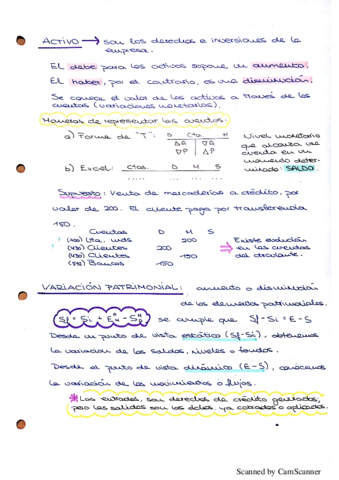 ACTIVO → son los derechos e inversiones de la
empresa.
El debe para los activos supone un aumento.
El haber, por el contrario, es una disminución.
Se conoce el valor de los activos a través de las
cuentas (variaciones monetarias).
Maneras de representar las cuentas:
a) Forma de "T": D Cta. H
ΔA ∇A
∇P ΔP
Nivel monetario
que alcanza una
cuenta en un
momento deter-
minado: SALDO.
b) Excel: Ctas. D H S
Supuesto: Venta de mercaderías a crédito, por
valor de 200. El cliente paga por transferencia
150.
Cuentas D H S
(700) Vta. mds 200
(430) Clientes 200
(430) Clientes 150
(572) Bancos 150
→ Existe evolución
→ en las cuentas
del circulante.
VARIACIÓN PATRIMONIAL: aumento o disminución
de los elementos patrimoniales.
se cumple que Sf - Si = E - S
Desde un punto de vista estático (Sf-Si), obtenemos
la variación de los saldos, niveles o fondos.
Desde el punto de vista dinámico (E-S), conocemos
la variación de los movimientos o flujos.
* Las entradas, son derechos de crédito generados,
pero las salidas son los dchos. ya cobrados o aplicados.
Scanned by CamScanner